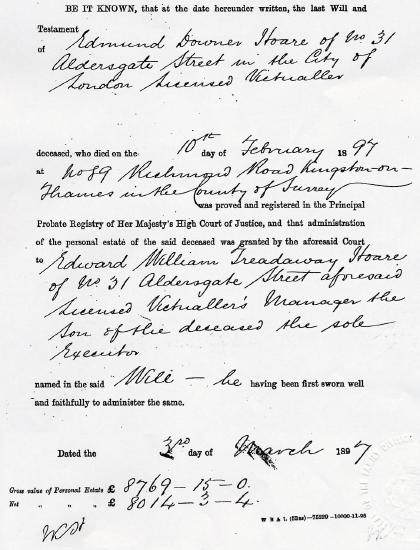 BE IT KNOWN, that at the date hereunder written, the last Will and
Testament
of Edmund Downer Hoare of No 31
Aldersgate Street in the City of
London Licensed Victualler
deceased, who died on the 10th day of February 1897
at No 89 Richmond Road Kingston-on-
Thames in the County of Surrey
was proved and registered in the Principal
Probate Registry of Her Majesty's High Court of Justice, and that administration
of the personal estate of the said deceased was granted by the aforesaid Court
to Edward William Treadaway Hoare
of No 31 Aldersgate Street aforesaid
Licensed Victualler's Manager the
Son of the deceased the sole
Executor
named in the said Will — he having been first sworn well
and faithfully to administer the same.
Dated the 3rd day of March 1897
Gross value of Personal Estate £ 8769-15-0.
Net " " " £ 8014-3-4.